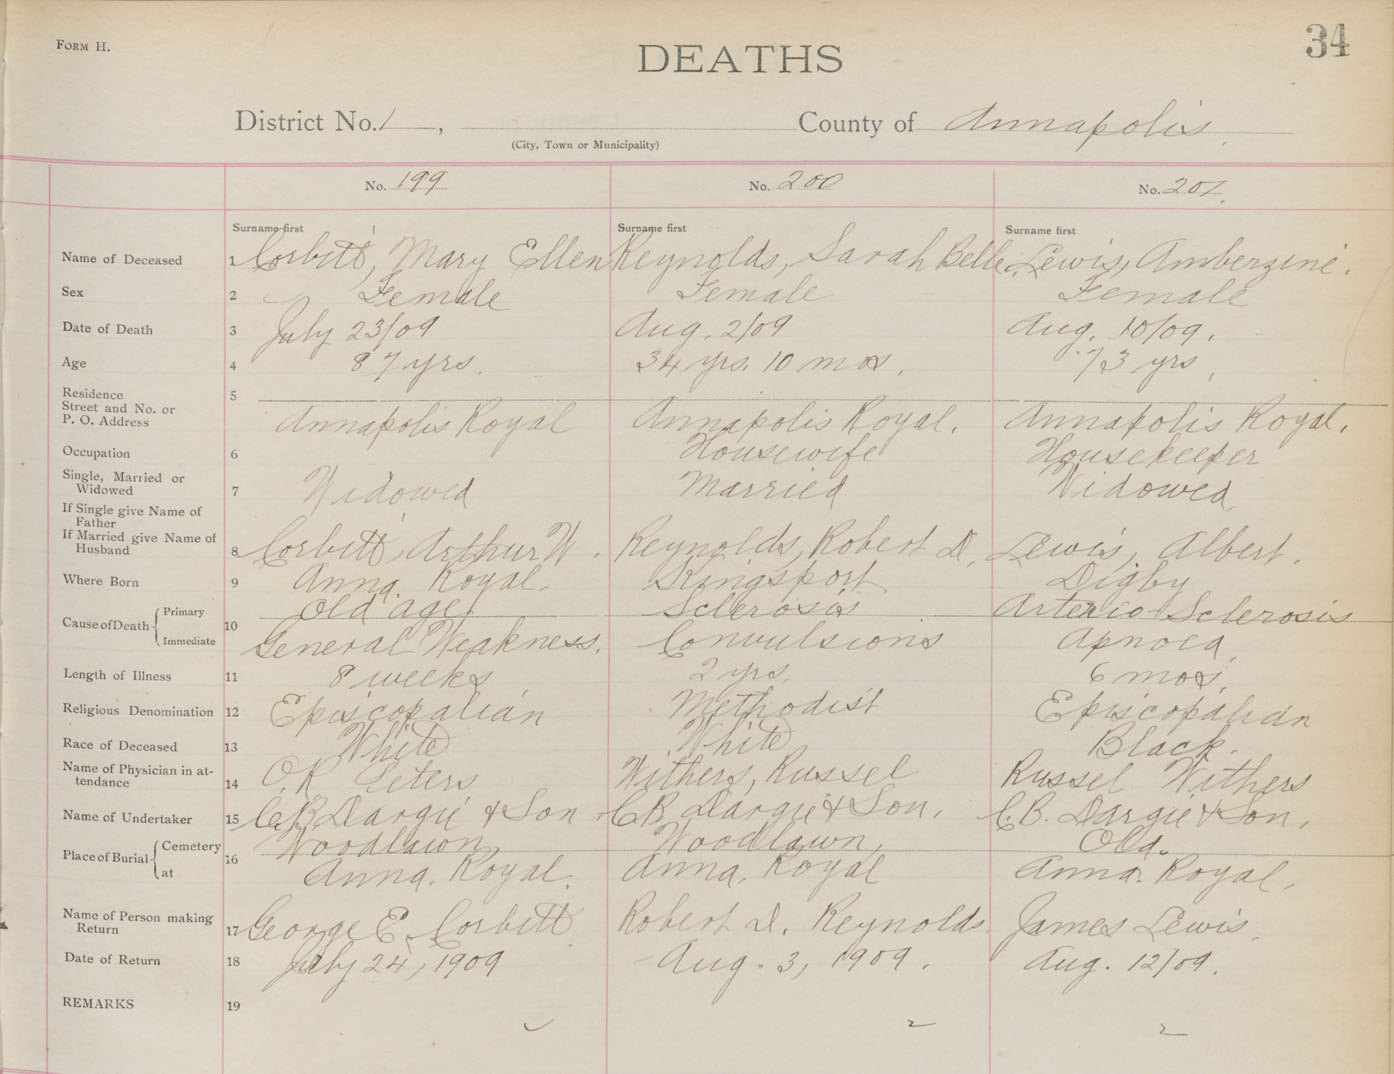 FORM H.
34
DEATHS
District No. 1, County of Annapolis.
(City, Town or Municipality)
No. 199 No. 200 No. 201.
Surname first Surname first Surname first
Name of Deceased 1 Corbitt, Mary Ellen Reynolds, Sarah Belle. Lewis, Amberzine.
Sex 2 Female Female Female
Date of Death 3 July 23/09 Aug. 2/09 Aug. 10/09.
Age 4 87 yrs. 34 yrs. 10 mos. 73 yrs.
Residence 5
Street and No. or
P. O. Address Annapolis Royal Annapolis Royal. Annapolis Royal.
Occupation 6 Housewife Housekeeper
Single, Married or
Widowed 7 Widowed Married Widowed
If Single give Name of
Father
If Married give Name of
Husband 8 Corbitt, Arthur W. Reynolds, Robert D. Lewis, Albert.
Where Born 9 Anna. Royal. Kingsport Digby
Cause of Death Primary Old age Sclerosis Arterio-Sclerosis
10 Immediate General Weakness. Convulsions Apnoea.
Length of Illness 11 8 weeks 2 yrs. 6 mos.
Religious Denomination 12 Episcopalian Methodist Episcopalian
Race of Deceased 13 White White Black.
Name of Physician in at-
tendance 14 O.R. Peters Withers, Russel Russel Withers
Name of Undertaker 15 C.B. Dargie & Son C.B. Dargie & Son. C.B. Dargie & Son.
Place of Burial Cemetery 16 Woodlawn, Woodlawn, Old.
at Anna. Royal. Anna. Royal Anna. Royal.
Name of Person making
Return 17 George E. Corbitt Robert D. Reynolds. James Lewis.
Date of Return 18 July 24, 1909 Aug. 3, 1909. Aug. 12/09.
REMARKS 19
2 2